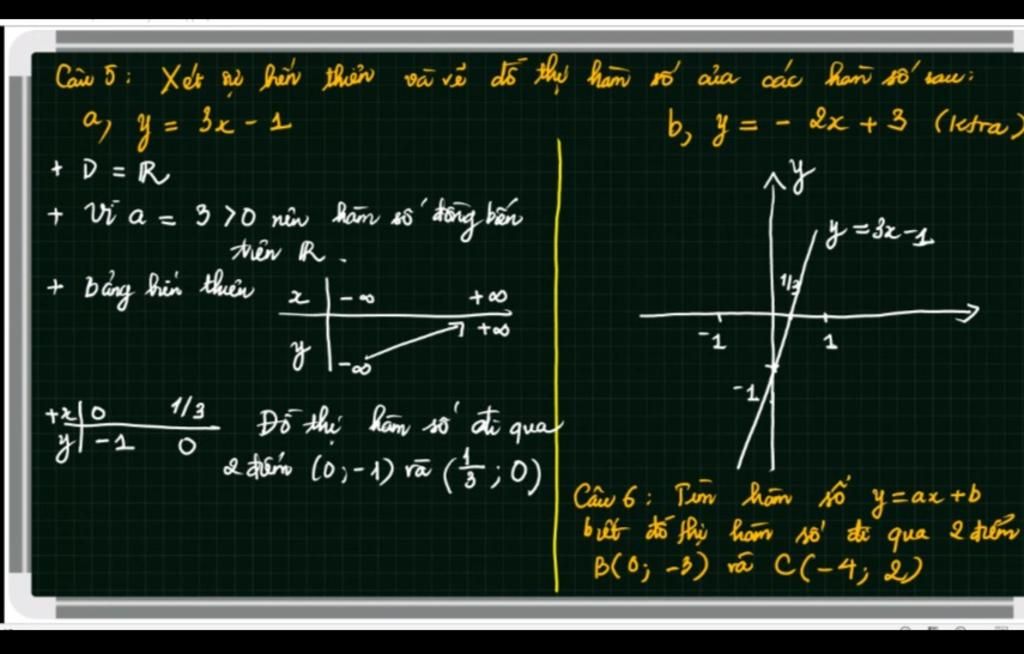 Câu 5: Xét sự biến thiên và vẽ đồ thị hàm số của các hàm số sau:
a, y = 3x - 1
b, y = - 2x + 3 (ktra)
+ D = ℝ
+ Vì a = 3 > 0 nên hàm số đồng biến
trên ℝ.
+ Bảng biến thiên
x | -∞ +∞
y | -∞ +∞
+ x | 0 1/3
y | -1 0
Đồ thị hàm số đi qua
2 điểm (0; -1) và (1/3; 0)
y
y = 3x - 1
1/3
-1 1
-1
Câu 6: Tìm hàm số y = ax + b
biết đồ thị hàm số đi qua 2 điểm
B(0; -3) và C(-4; 2)